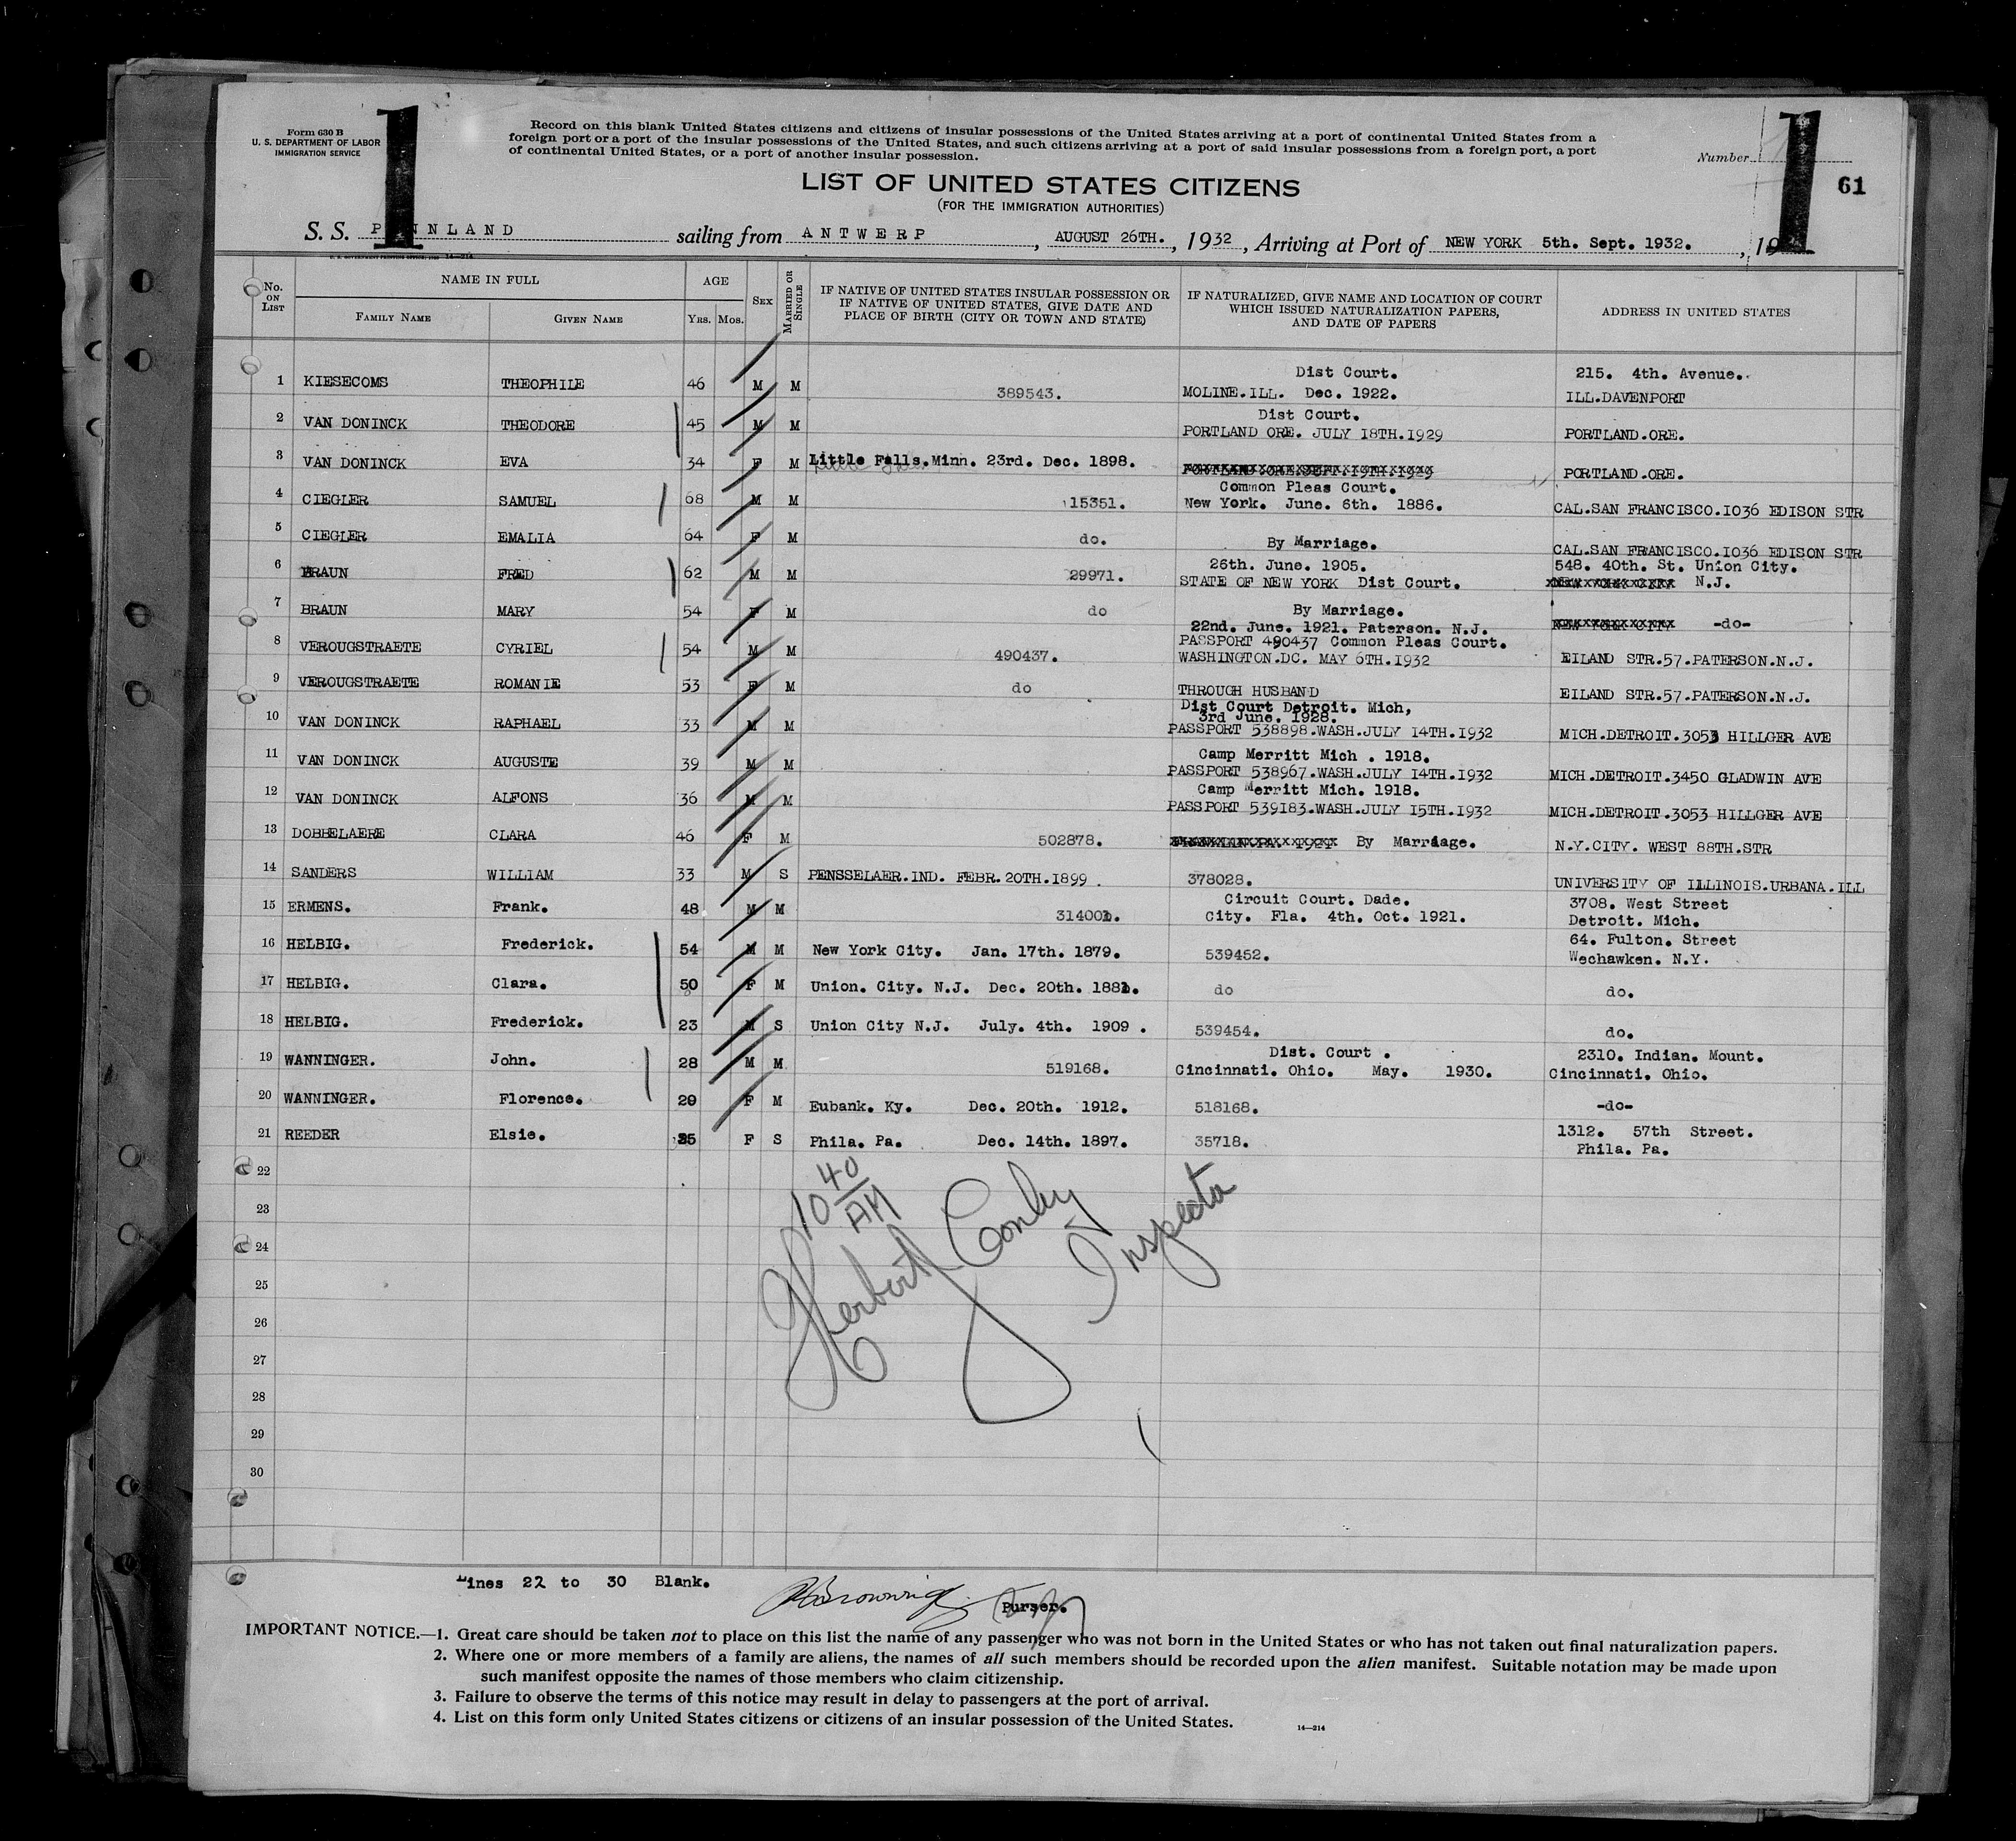 1
1
Form 630 B
U. S. DEPARTMENT OF LABOR
IMMIGRATION SERVICE
Record on this blank United States citizens and citizens of insular possessions of the United States arriving at a port of continental United States from a
foreign port or a port of the insular possessions of the United States, and such citizens arriving at a port of said insular possessions from a foreign port, a port
of continental United States, or a port of another insular possession.
Number
61
LIST OF UNITED STATES CITIZENS
(FOR THE IMMIGRATION AUTHORITIES)
S. S. PENNLAND sailing from ANTWERP, AUGUST 26TH., 1932, Arriving at Port of NEW YORK 5th. Sept. 1932., 19
No. ON LIST
NAME IN FULL
FAMILY NAME
GIVEN NAME
AGE
YRS. MOS.
SEX
MARRIED OR SINGLE
IF NATIVE OF UNITED STATES INSULAR POSSESSION OR
IF NATIVE OF UNITED STATES, GIVE DATE AND
PLACE OF BIRTH (CITY OR TOWN AND STATE)
IF NATURALIZED, GIVE NAME AND LOCATION OF COURT
WHICH ISSUED NATURALIZATION PAPERS,
AND DATE OF PAPERS
ADDRESS IN UNITED STATES
Dist Court. 215. 4th. Avenue.
1 KIESECOMS THEOPHILE 46 M M 389543. MOLINE.ILL. Dec. 1922. ILL.DAVENPORT
Dist Court.
2 VAN DONINCK THEODORE 45 M M PORTLAND ORE. JULY 18TH.1929 PORTLAND.ORE.
3 VAN DONINCK EVA 34 F M Little Falls.Minn. 23rd. Dec. 1898. PORTLAND.ORE.
Common Pleas Court.
4 CIEGLER SAMUEL 68 M M 15351. New York. June. 6th. 1886. CAL.SAN FRANCISCO.1036 EDISON STR
5 CIEGLER EMALIA 64 F M do. By Marriage. CAL.SAN FRANCISCO.1036 EDISON STR
26th. June. 1905. 548. 40th. St. Union City.
6 BRAUN FRED 62 M M 29971. STATE OF NEW YORK Dist Court. N.J.
7 BRAUN MARY 54 F M do By Marriage. NEW YORK CITY -do-
22nd. June. 1921. Paterson. N.J.
PASSPORT 490437 Common Pleas Court.
8 VEROUGSTRAETE CYRIEL 54 M M 490437. WASHINGTON.DC. MAY 6TH.1932 EILAND STR.57.PATERSON.N.J.
9 VEROUGSTRAETE ROMANIE 53 F M do THROUGH HUSBAND EILAND STR.57.PATERSON.N.J.
Dist Court Detroit. Mich,
3rd June. 1928.
10 VAN DONINCK RAPHAEL 33 M M PASSPORT 538898.WASH.JULY 14TH.1932 MICH.DETROIT.3053 HILLGER AVE
Camp Merritt Mich . 1918.
11 VAN DONINCK AUGUSTE 39 M M PASSPORT 538967.WASH.JULY 14TH.1932 MICH.DETROIT.3450 GLADWIN AVE
Camp Merritt Mich. 1918.
12 VAN DONINCK ALFONS 36 M M PASSPORT 539183.WASH.JULY 15TH.1932 MICH.DETROIT.3053 HILLGER AVE
13 DOBBELAERE CLARA 46 F M 502878. By Marriage. N.Y.CITY. WEST 88TH.STR
14 SANDERS WILLIAM 33 M S PENSSELAER.IND. FEBR.20TH.1899. 378028. UNIVERSITY OF ILLINOIS.URBANA.ILL
Circuit Court. Dade. 3708. West Street
15 ERMENS. Frank. 48 M M City. Fla. 4th. Oct. 1921. Detroit. Mich.
64. Fulton. Street
16 HELBIG. Frederick. 54 M M New York City. Jan. 17th. 1879. 539452. Wechawken. N.Y.
17 HELBIG. Clara. 50 F M Union. City. N.J. Dec. 20th. do do.
18 HELBIG. Frederick. 23 M S Union City N.J. July. 4th. 1909 . 539454. do.
Dist. Court . 2310. Indian. Mount.
19 WANNINGER. John. 28 M M 519168. Cincinnati. Ohio. May. 1930. Cincinnati. Ohio.
20 WANNINGER. Florence. F M Eubank. Ky. Dec. 20th. 1912. 518168. -do-
1312. 57th Street.
21 REEDER Elsie. 35 F S Phila. Pa. Dec. 14th. 1897. 35718. Phila. Pa.
22
23
24
25
26
27
28
29
30
10 40 AM
Herbert Conley
Inspector
Lines 22 to 30 Blank.
Purser.
IMPORTANT NOTICE.—1. Great care should be taken not to place on this list the name of any passenger who was not born in the United States or who has not taken out final naturalization papers.
2. Where one or more members of a family are aliens, the names of all such members should be recorded upon the alien manifest. Suitable notation may be made upon
such manifest opposite the names of those members who claim citizenship.
3. Failure to observe the terms of this notice may result in delay to passengers at the port of arrival.
4. List on this form only United States citizens or citizens of an insular possession of the United States.
14—214